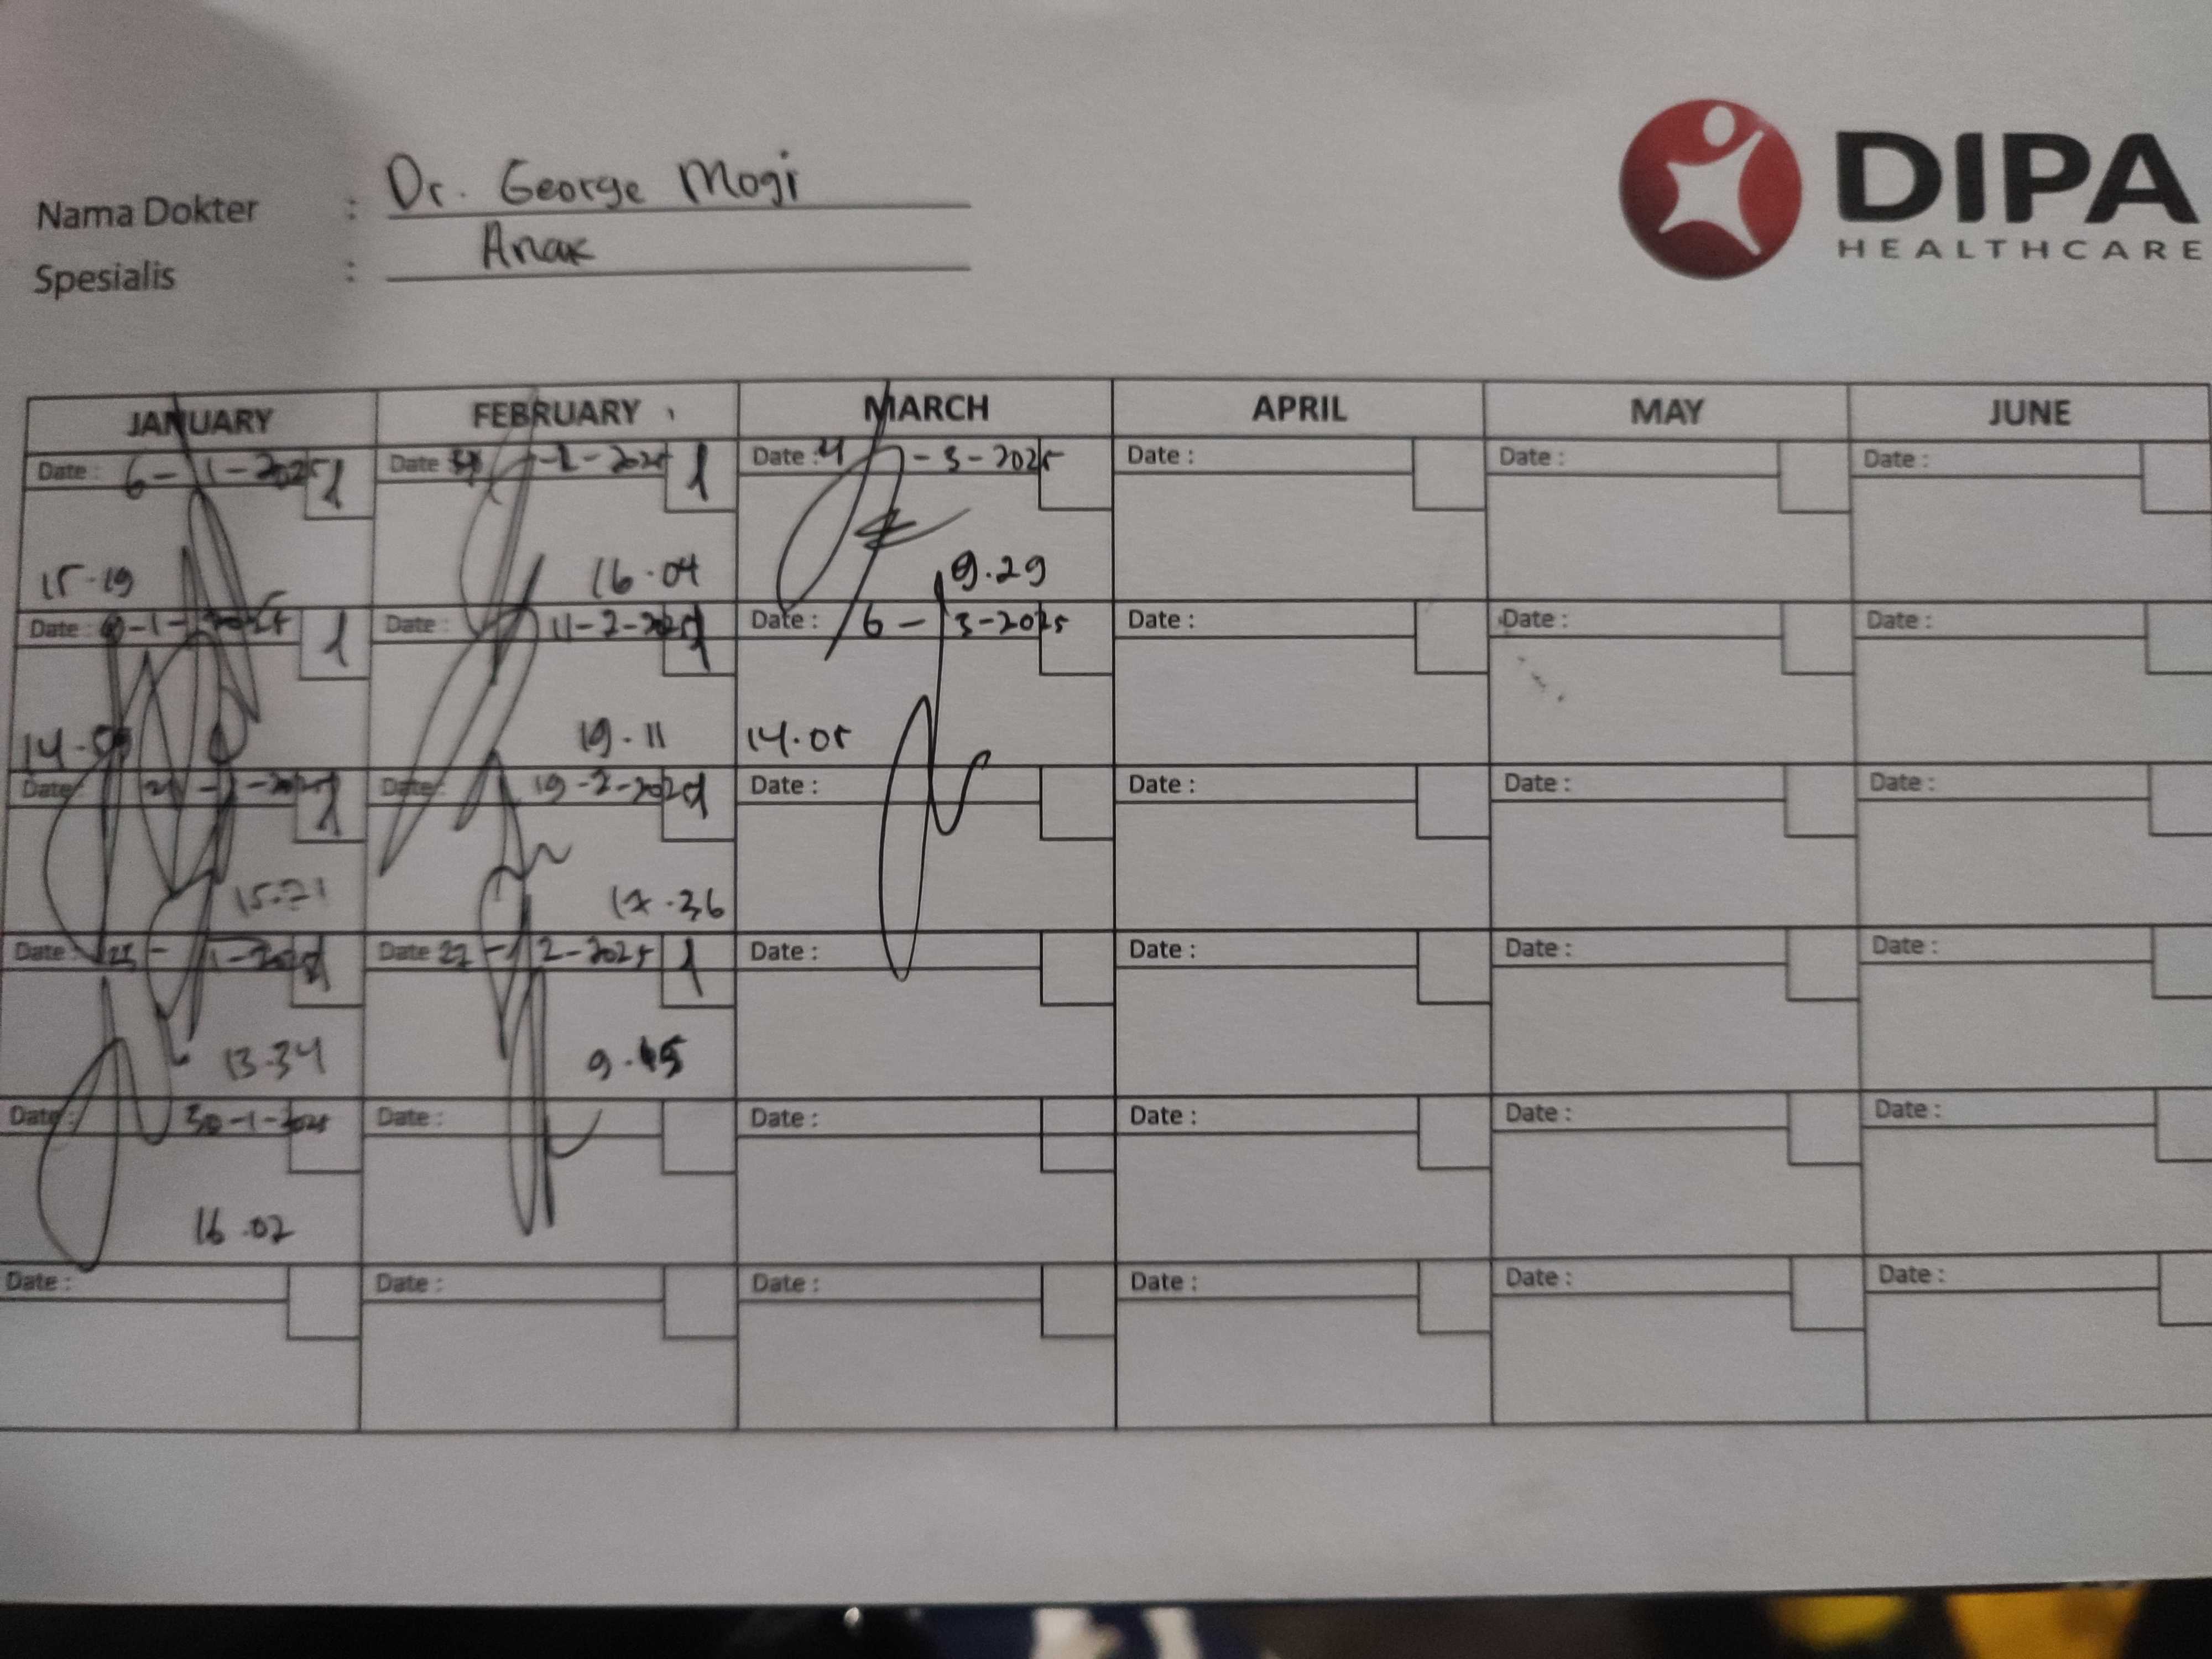 DIPA
HEALTHCARE
Nama Dokter : Dr. George Mogi
Spesialis : Anak
JANUARY FEBRUARY MARCH APRIL MAY JUNE
Date : 6-1-2025 1 Date -2-2025 1 Date : 4-3-2025 Date : Date : Date :
15.19 16.04 9.29
Date : -1-2025 1 Date : 11-2-2025 1 Date : 6-3-2025 Date : Date : Date :
14. 19.11 14.05
Date : -1-2025 1 Date : 19-2-2025 1 Date : Date : Date : Date :
15.21 17.36
Date : -1-2025 1 Date 27-2-2025 1 Date : Date : Date : Date :
13.34 9.45
Date : 30-1-2025 Date : Date : Date : Date : Date :
16.02
Date : Date : Date : Date : Date : Date :